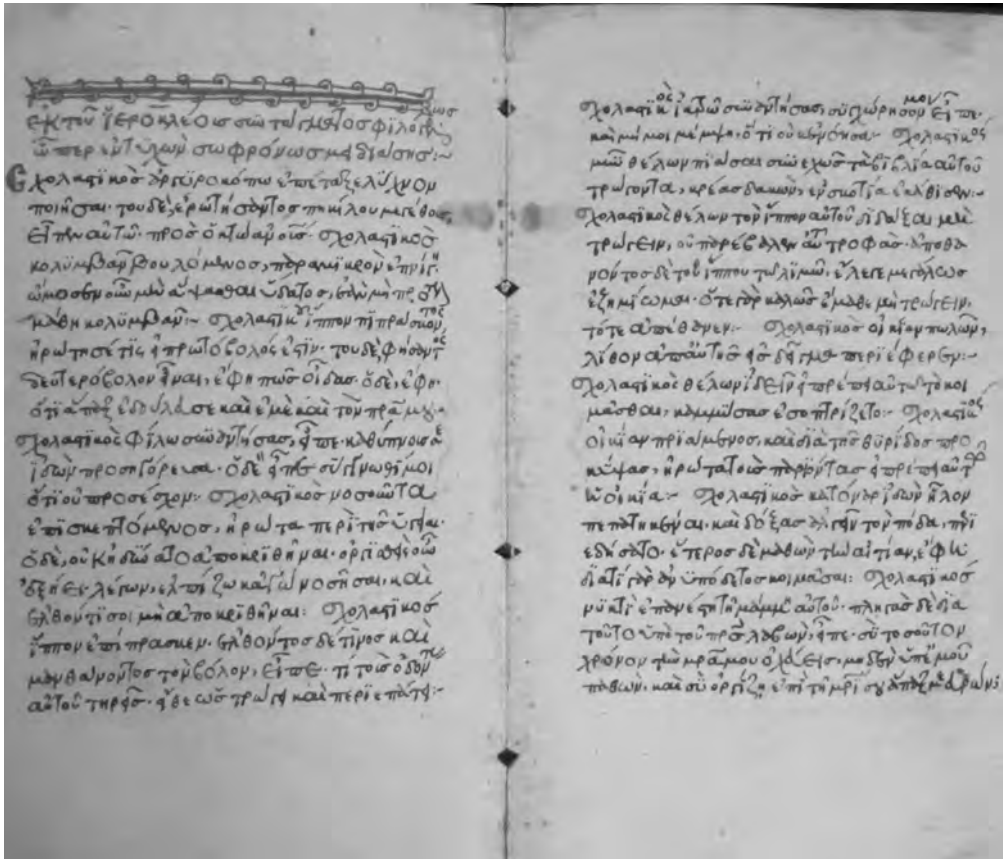 ἐκ τῶν ἱεροκλέους συντάγματος φιλογέλως
ὧπερ ἐντυχὼν σωφρόνως μειδιάσῃς:~
Σχολαστικὸς ἀργυροκόπω ἐπέταξε λύχνον
ποιῆσαι. τοῦ δὲ, ἐρωτήσαντος πηλίκου μεγέθους,
εἶπεν αὐτῶ. πρὸς ὀκτὼ ἀνοις. σχολαστικὸς
κολυμβᾶν βουλόμενος, παρὰ μικρὸν ἐπνίγη
ὤμοσεν οὖν μὴ ἅψασθαι ὕδατος, ἐὰν μὴ πρῶτον
μάθη κολυμβᾶν:~ σχολαστικὸς ἵππον πιπράσκοντος
ἠρώτησέ τις ἡ πρωτόβολός ἐστιν. τοῦ δὲ φήσαντος
δευτερόβολον εἶναι, ἔφη πῶς οἶδας. ὁ δὲ, ἔφη.
ὅτι ἅπαξ ἔβαλε καὶ ἐμὲ καὶ τὸν πρα μου.
σχολαστικὸς φίλω συναντήσας, εἶπε. καθ' ὕπνους σε
ἰδὼν προσηγόρευσα. ὁ δὲ εἶπε συγγνωθί μοι
ὅτι οὐ προσέσχον: σχολαστικὸς νοσοῦντα
ἐπισκεπτόμενος, ἠρώτα περὶ τῆς ὑγείας.
ὁ δὲ, οὐκ ἠδύνατο ἀποκριθῆναι. ὀργισθεὶς οὖν
λέγων, ἐλπίζω κἀγὼ νοσῆσαι, καὶ
ἐλθόντι σοι μὴ ἀποκριθῆναι: σχολαστικὸς
ἵππον ἐπίπρασκεν. ἐλθόντος δέ τινος καὶ
μανθάνοντος τὸν βόλον, εἶπε. τί τοὺς ὀδόντας
αὐτοῦ τηρεῖς. εἴθε ὡς τρώγει καὶ περιεπάτει:~
σχολαστικὸς ἰατρῶ συναντήσας, συγχώρησόν μοι εἶπε.
καὶ μή μοι μέμψη. ὅτι οὐκ ἐνόσησα:~ σχολαστικὸς
μῦν θέλων πιάσαι συνεχῶς τὰ βιβλία αὐτοῦ
τρώγοντα, κρέας δακὼν, ἐν σκοτία ἐκάθισεν:~
σχολαστικὸς θέλων τὸν ἵππον αὐτοῦ διδάξαι μὴ
τρώγειν, οὐ παρέβαλεν αὐτῶ τροφάς. ἀποθα
νόντος δὲ τοῦ ἵππου τῶ λιμῶ, ἔλεγε μεγάλως
ἐζημίωμαι. ὅτε γὰρ καλῶς ἔμαθε μὴ τρώγειν,
τότε ἀπέθανεν:~ σχολαστικὸς οἰκίαν πωλῶν,
λίθον ἀπ' αὐτῆς εἰς δεῖγμα περιέφερεν:~
σχολαστικὸς θέλων ἰδεῖν εἰ πρέπει αὐτῶ τὸ κοι
μᾶσθαι, καμμύσας ἐσοπτρίζετο:~ σχολαστικὸς
οἰκίαν πριάμενος, καὶ διὰ τῆς θυρίδος προ
κύψας, ἠρώτα τοὺς παριόντας εἰ πρέπει αὐτῶ
ἡ οἰκία:~ σχολαστικὸς κατ' ὄναρ ἰδὼν ἧλον
πεπατηκέναι. καὶ δόξας ἀλγεῖν τὸν πόδα, περι
εδήσατο. ἕτερος δὲ μαθὼν τὴν αἰτίαν, ἔφη
διατί γὰρ ἀνυπόδετος κοιμᾶσαι: σχολαστικὸς
νυκτὶ ἐπανέστη τῆ μάμμη αὐτοῦ. πληγὰς δὲ διὰ
τοῦτο ὑπὸ τοῦ πρς λαβὼν, εἶπε. σὺ τοσοῦτον
χρόνον τὴν μρα μου ὀχεύεις, μηδὲν ὑπ' ἐμοῦ
παθὼν. καὶ σὺ ὀργίζη ἐπὶ τῆ μρι σου ἅπαξ με εὑρών: